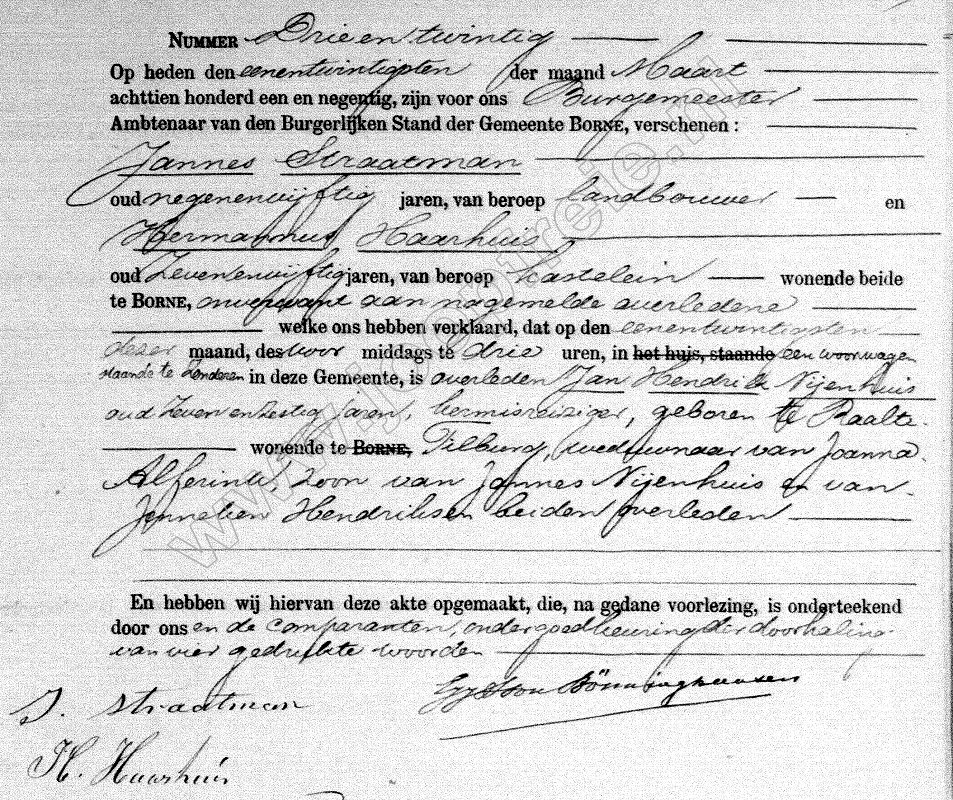 NUMMER Drie en twintig
Op heden den eenentwintigsten der maand Maart
achttien honderd een en negentig, zijn voor ons Burgemeester
Ambtenaar van den Burgerlijken Stand der Gemeente BORNE, verschenen :
Jannes Straatman
oud negenenvijftig jaren, van beroep landbouwer en
Hermannus Haarhuis
oud Zevenenvijftig jaren, van beroep kastelein wonende beide
te BORNE, onverwant aan nagemelde overledene
welke ons hebben verklaard, dat op den eenentwintigsten
dezer maand, des voor middags te drie uren, in het huis, staande een woonwagen
staande te Zenderen in deze Gemeente, is overleden Jan Hendrik Nijenhuis
oud Zeven en Zestig jaren, kermisreiziger, geboren te Raalte
wonende te BORNE, Tilburg, weduwnaar van Joanna
Alferink, Zoon van Jannes Nijenhuis en van
Jenneken Hendriksen beiden overleden
En hebben wij hiervan deze akte opgemaakt, die, na gedane voorlezing, is onderteekend
door ons en de comparanten, onder goedkeuring der doorhaling
van vier gedrukte woorden
J. Straatman
H. Haarhuis
www.boschreie.nl